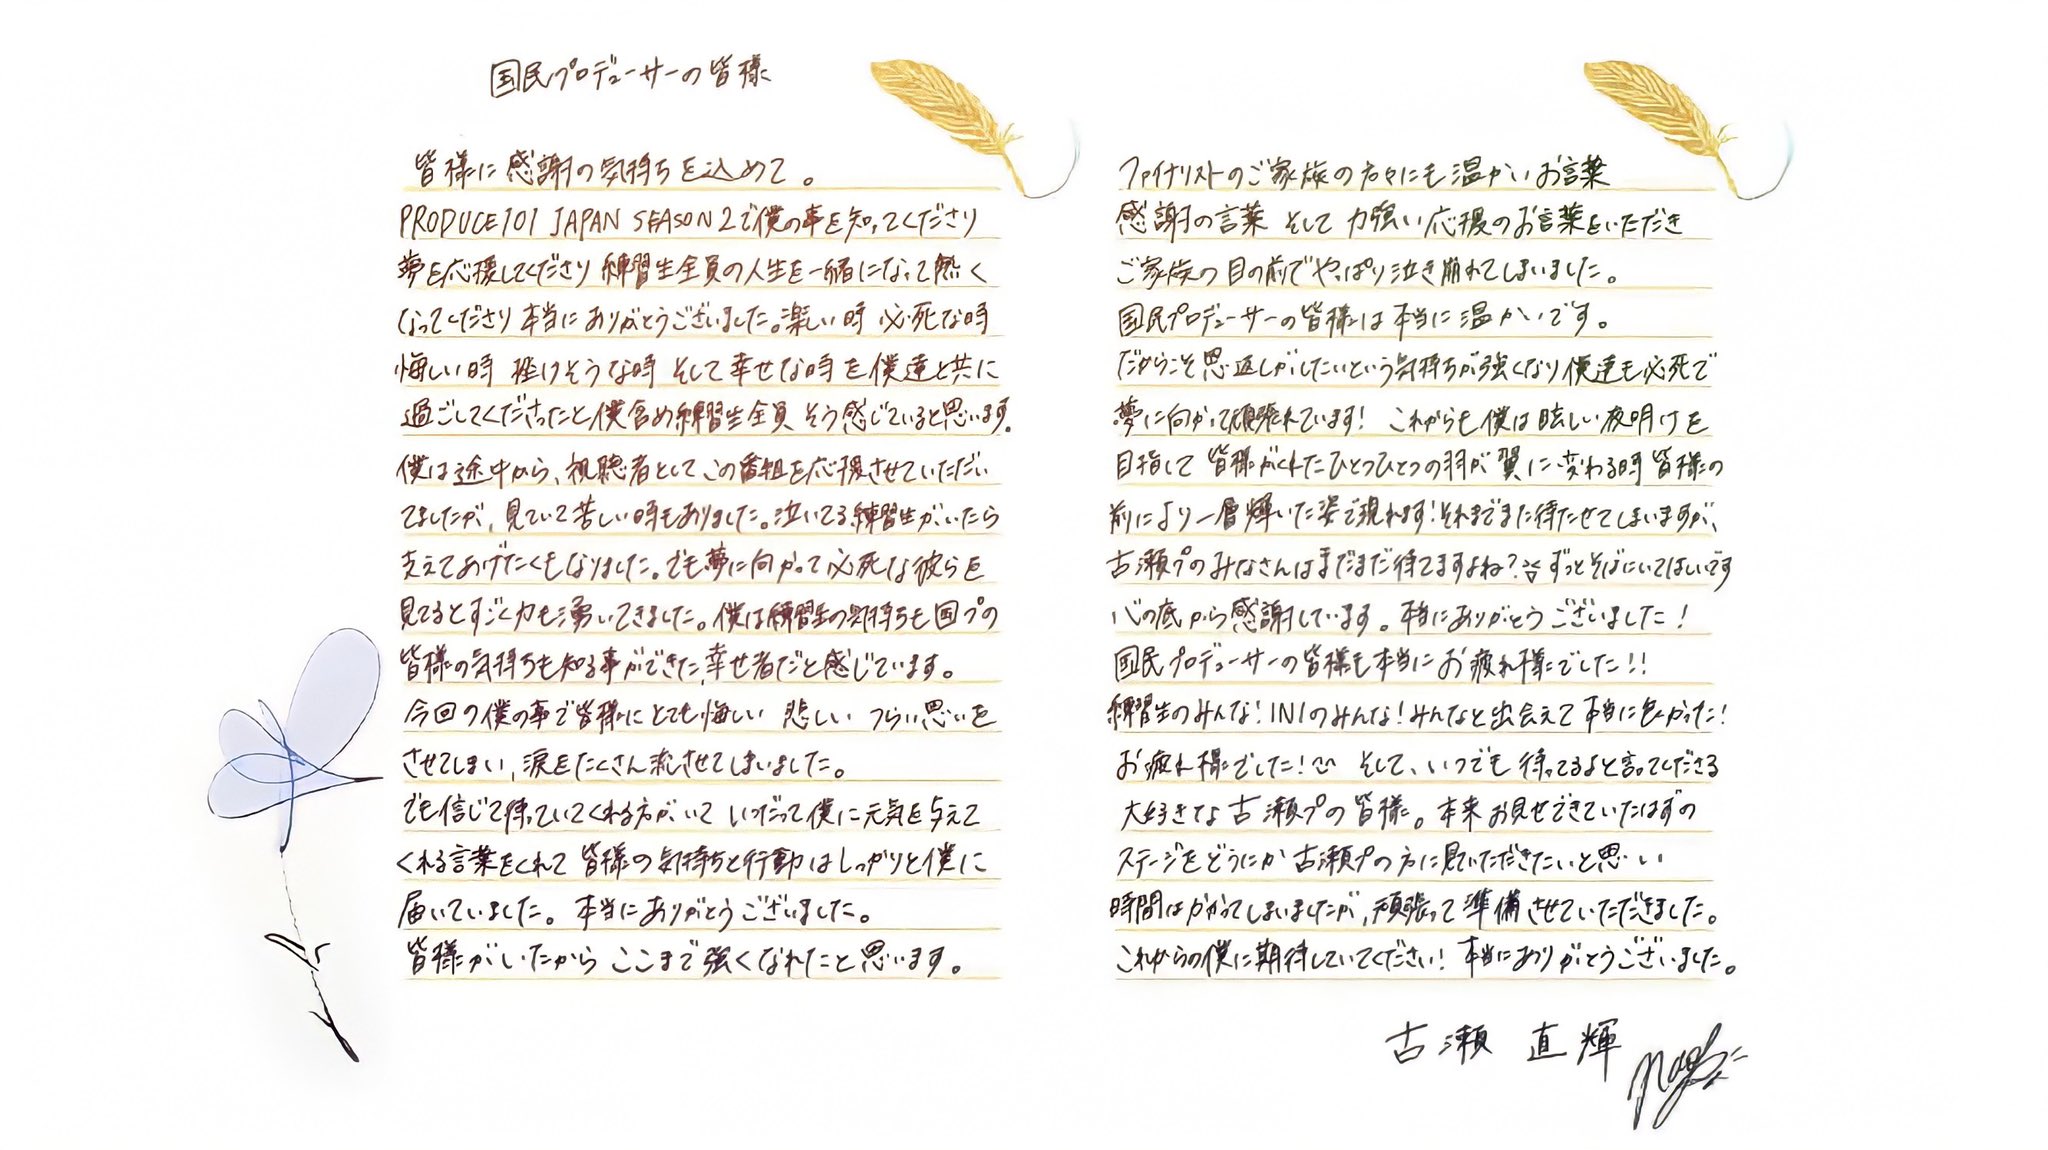 国民プロデューサーの皆様
皆様に感謝の気持ちを込めて。
PRODUCE101 JAPAN SEASON2で僕の事を知ってくださり
夢を応援してくださり 練習生全員の人生を一緒になって熱く
なってくださり本当にありがとうございました。楽しい時 必死な時
悔しい時 挫けそうな時 そして幸せな時を僕達と共に
過ごしてくださったと僕含め練習生全員 そう感じていると思います。
僕は途中から、視聴者としてこの番組を応援させていただい
てましたが、見ていて苦しい時もありました。泣いてる練習生がいたら
支えてあげたくもなりました。でも夢に向かって必死な彼らを
見てるとすごく力も湧いてきました。僕は練習生の気持ちも国プの
皆様の気持ちも知る事ができた、幸せ者だと感じています。
今回の僕の事で皆様にとても悔しい 悲しい つらい思いを
させてしまい、涙をたくさん流させてしまいました。
でも信じて待っていてくれる方がいて いつだって僕に元気を与えて
くれる言葉をくれて 皆様の気持ちと行動はしっかりと僕に
届いていました。本当にありがとうございました。
皆様がいたから ここまで強くなれたと思います。
ファイナリストのご家族の方々にも温かいお言葉
感謝の言葉 そして 力強い応援のお言葉をいただき
ご家族の目の前でやっぱり泣き崩れてしまいました。
国民プロデューサーの皆様は本当に温かいです。
だからこそ恩返しがしたいという気持ちが強くなり僕達も必死で
夢に向かって頑張れています! これからも僕は眩しい夜明けを
目指して 皆様がくれたひとつひとつの羽が翼に変わる時 皆様の
前により一層輝いた姿で現れます!それまでまた待たせてしまいますが、
古瀬プのみなさんはまだまだ待てますよね? ずっとそばにいてほしいです
心の底から感謝しています。本当にありがとうございました!
国民プロデューサーの皆様も本当にお疲れ様でした!!
練習生のみんな!INIのみんな!みんなと出会えて本当に良かった!
お疲れ様でした! そして、いつでも待ってるよと言ってくださる
大好きな古瀬プの皆様。本来お見せできていたはずの
ステージをどうにか古瀬プの方に見ていただきたいと思い
時間はかかってしまいましたが、頑張って準備させていただきました。
これからの僕に期待していてください! 本当にありがとうございました。
古瀬 直輝